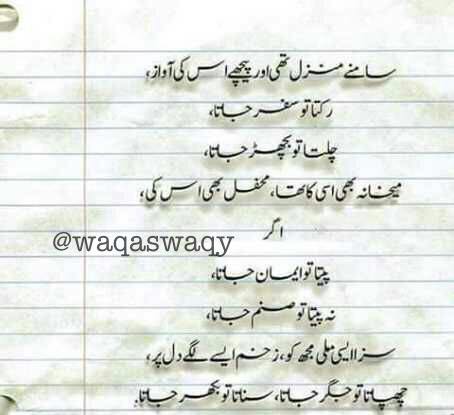 سامنے منزل تھی اور پیچھے اس کی آواز،
رکتا تو سفر جاتا،
چلتا تو بچھڑ جاتا،
میخانہ بھی اسی کا تھا، محفل بھی اس کی،
اگر
@waqaswaqy
پیتا تو ایمان جاتا،
نہ پیتا تو صنم جاتا،
سزا ایسی ملی مجھ کو، زخم ایسے لگے دل پر،
چھپاتا تو جگر جاتا، سناتا تو بکھر جاتا.